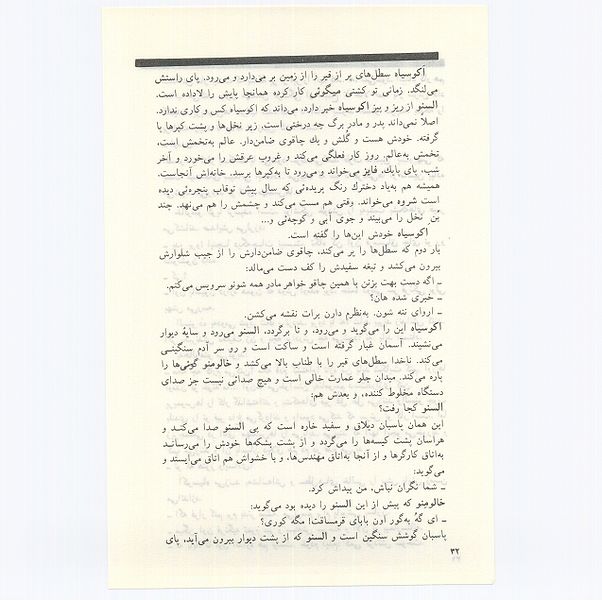 اکوسیاه سطل‌های پر از قیر را از زمین بر می‌دارد و می‌رود. پای راستش
می‌لنگد. زمانی تو کشتی میگوئی کار کرده همانجا پایش را لاداده است.
السنو از ریز و بیز اکوسیاه خبر دارد. می‌داند که اکوسیاه کس و کاری ندارد.
اصلاً نمی‌داند پدر و مادر برگ چه درختی است. زیر نخل‌ها و پشت کپرها پا
گرفته. خودش هست و گلش و یك چاقوی ضامن‌دار. عالم به‌تخمش است،
تخمش به‌عالم. روز کار فعلگی می‌کند و غروب عرقش را می‌خورد و آخر
شب، پای پاپك، فایز می‌خواند و می‌رود تا به‌کپرها برسد. خانه‌اش آنجاست.
همیشه هم به‌یاد دخترك رنگ پریده‌ئی که سال پیش توقاب پنجره‌ئی دیده
است شروه می‌خواند. وقتی هم مست می‌کند و چشمش را هم می‌نهد. چند
بُن نخل را می‌بیند و جوی آبی و کوچه‌ئی و...
اکوسیاه خودش این‌ها را گفته است.
بار دوم که سطل‌ها را پر می‌کند، چاقوی ضامن‌دارش را از جیب شلوارش
بیرون می‌کشد و تیغه سفیدش را کف دست می‌مالد:
ـ اگه دست بهت بزنن با همین چاقو خواهر مادر همه شونو سرویس می‌کنم.
ـ خبری شده هان؟
ـ اروای ننه شون. به‌نظرم دارن برات نقشه می‌کشن.
اکوسیاه این را می‌گوید و می‌رود، و تا برگردد، السنو می‌رود و سایهٔ دیوار
می‌نشیند. آسمان غبار گرفته است و ساکت است و رو سر آدم سنگینی
می‌کند. ناخدا سطل‌های قیر را با طناب بالا می‌کشد و خالومنو گونی‌ها را
پاره می‌کند. میدان جلو عمارت خالی است و هیچ صدائی نیست جز صدای
دستگاه مخلوط کننده، و بعدش هم:
السنو کجا رفت؟
این همان پاسبان دیلاق و سفید خاره است که پی السنو صدا می‌کند و
هراسان پشت کیسه‌ها را می‌گردد و از پشت بشکه‌ها خودش را می‌رساند
به‌اتاق کارگرها و از آنجا به‌اتاق مهندس‌ها، و با خشواش هم اتاق می‌ایستد و
می‌گوید:
ـ شما نگران نباش، من پیداش کرد.
خالومنو که پیش از این السنو را دیده بود می‌گوید:
ـ ای گُه به‌گور اون بابای قرمساقت! مگه کوری؟
پاسبان گوشش سنگین است و السنو که از پشت دیوار بیرون می‌آید، پای
۳۲